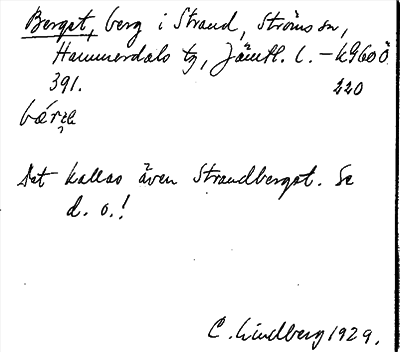 Berget, berg i Strand, Ströms sn,
Hammerdals tg, Jämtl. l. – k9600
391. 220
Det kallas även Strandberget. Se
d. o.!
C. Lindberg 1929.